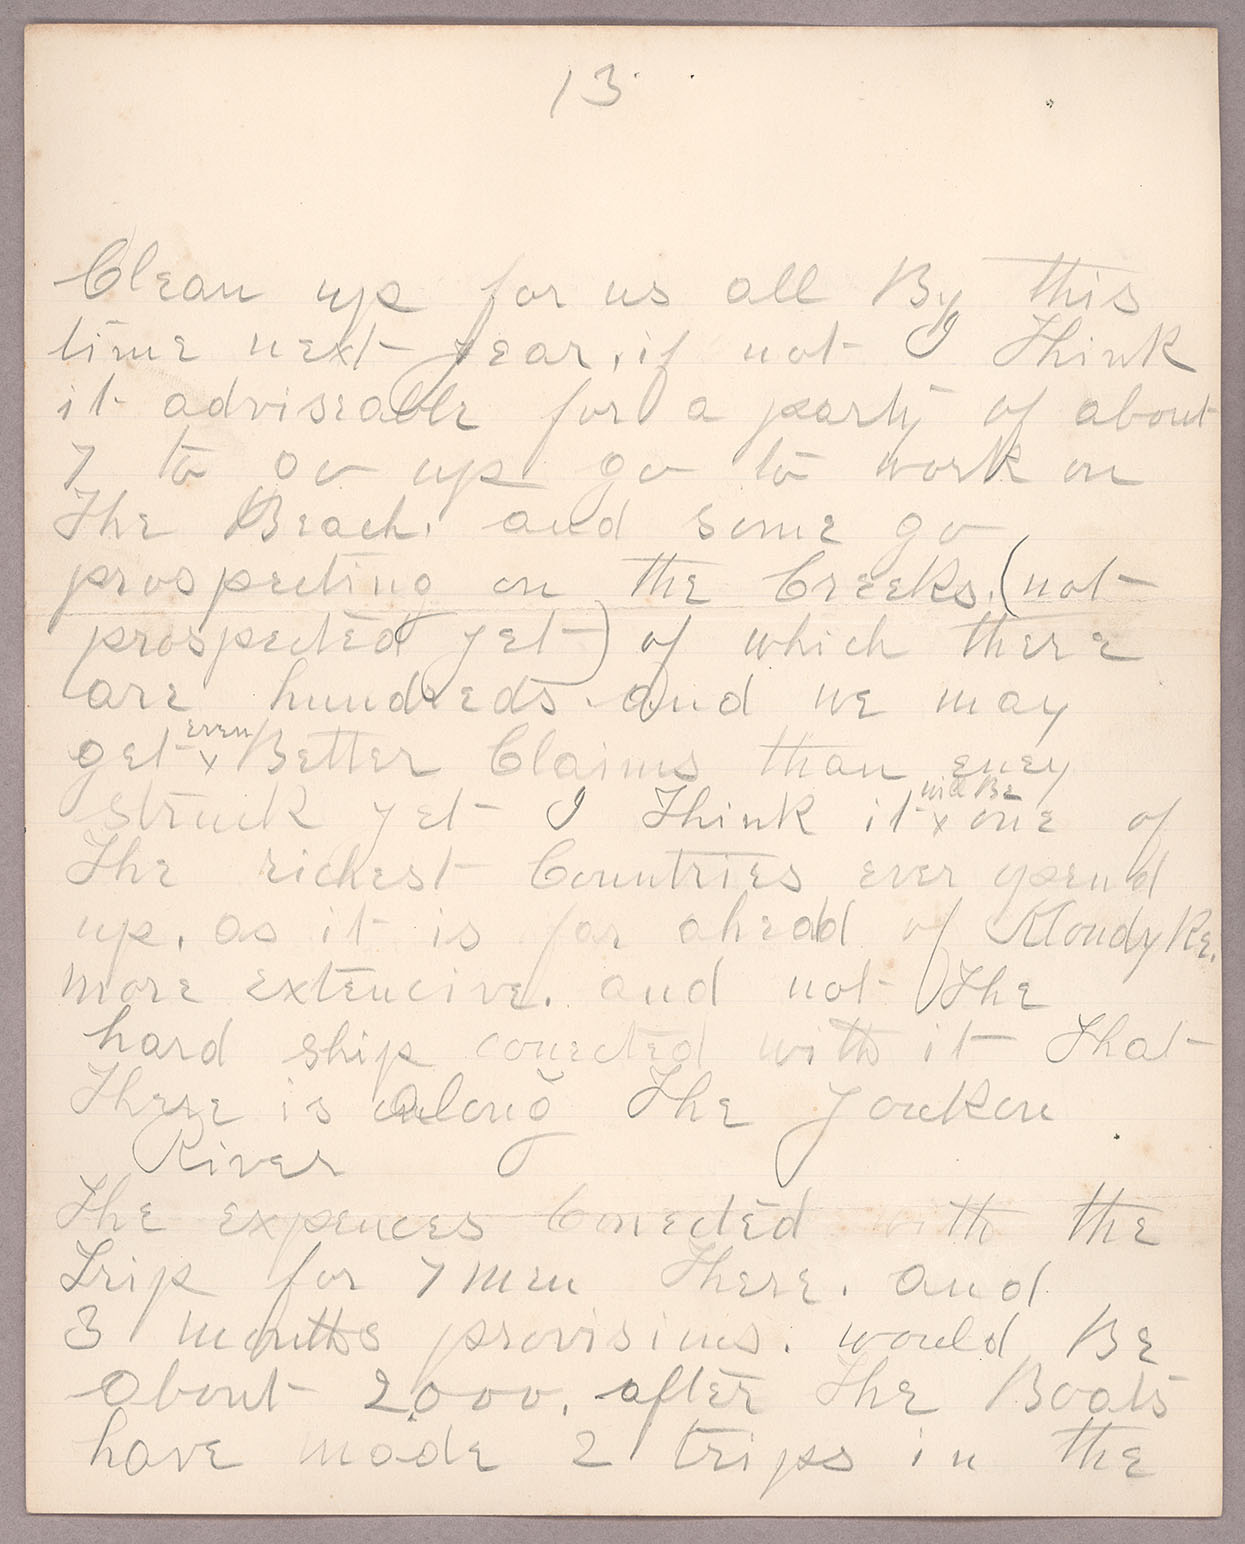 13
Clean up for us all By this
time next year, if not I Think
it adviseable for a party of about
7 to go up go to work on
The Beach. and some go
prospecting on the Creeks. (not
prospected yet) of which there
are hundreds. and we may
get even x Better Claims than eney
struck yet I Think it will Be x one of
The richest Countries ever opend
up. as it is far ahead of KlondyKe.
more extencive. and not The
hard ship conected with it That
There is along The YouKon
River
The expences Conected with the
Trip for 7 men There. and
3 months provisions. would Be
about 2,000. after The Boats
have made 2 trips in the